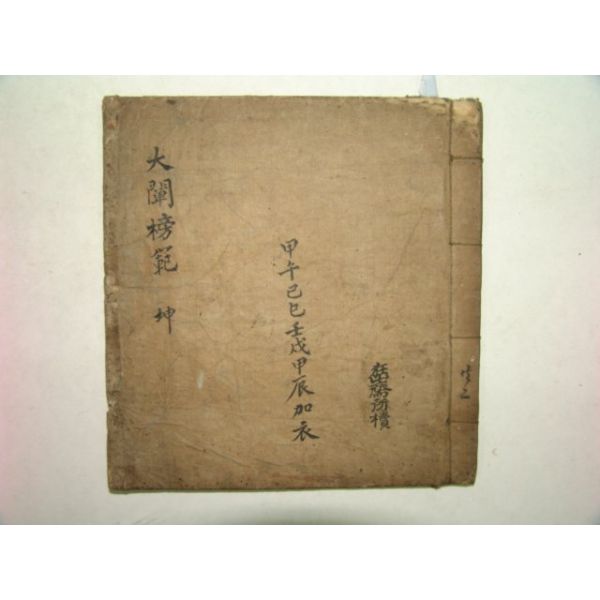 共二
甲午己巳壬戌甲辰加衣
大闡榜範 坤